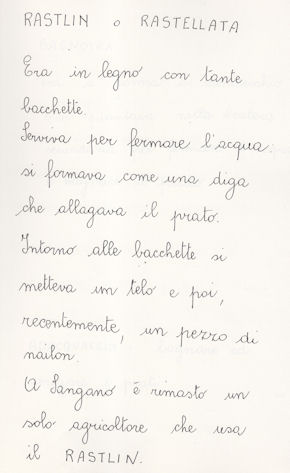 RASTLIN o RASTELLATA
Era in legno con tante
bacchette.
Serviva per fermare l'acqua:
si formava come una diga
che allagava il prato.
Intorno alle bacchette si
metteva un telo e poi,
recentemente, un pezzo di
nailon.
A Sangano è rimasto un
solo agricoltore che usa
il RASTLIN.